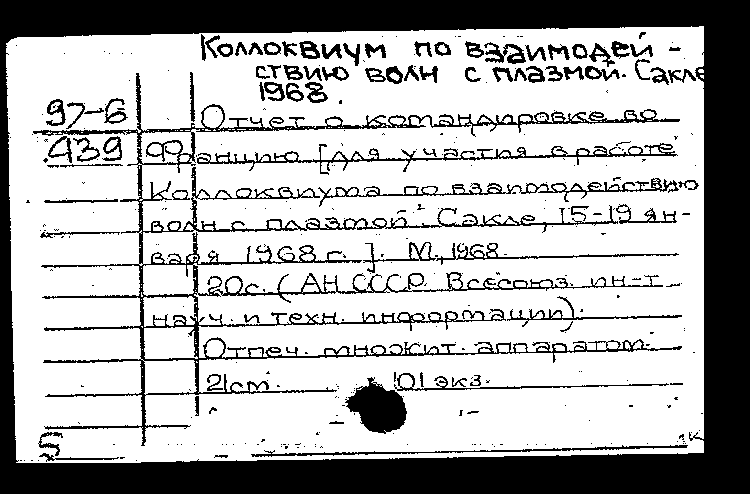 Коллоквиум по взаимодей-
ствию волн с плазмой. Сакле
1968.
97-6 Отчет о командировке во
439 Францию [для участия в работе
Коллоквиума по взаимодействию
волн с плазмой. Сакле, 15-19 ян-
варя 1968 г.]. М., 1968.
20с. (АН СССР. Всесоюз. ин-т
науч. и техн. информации).
Отпеч. множит. аппаратом.
21см. 101 экз.
5